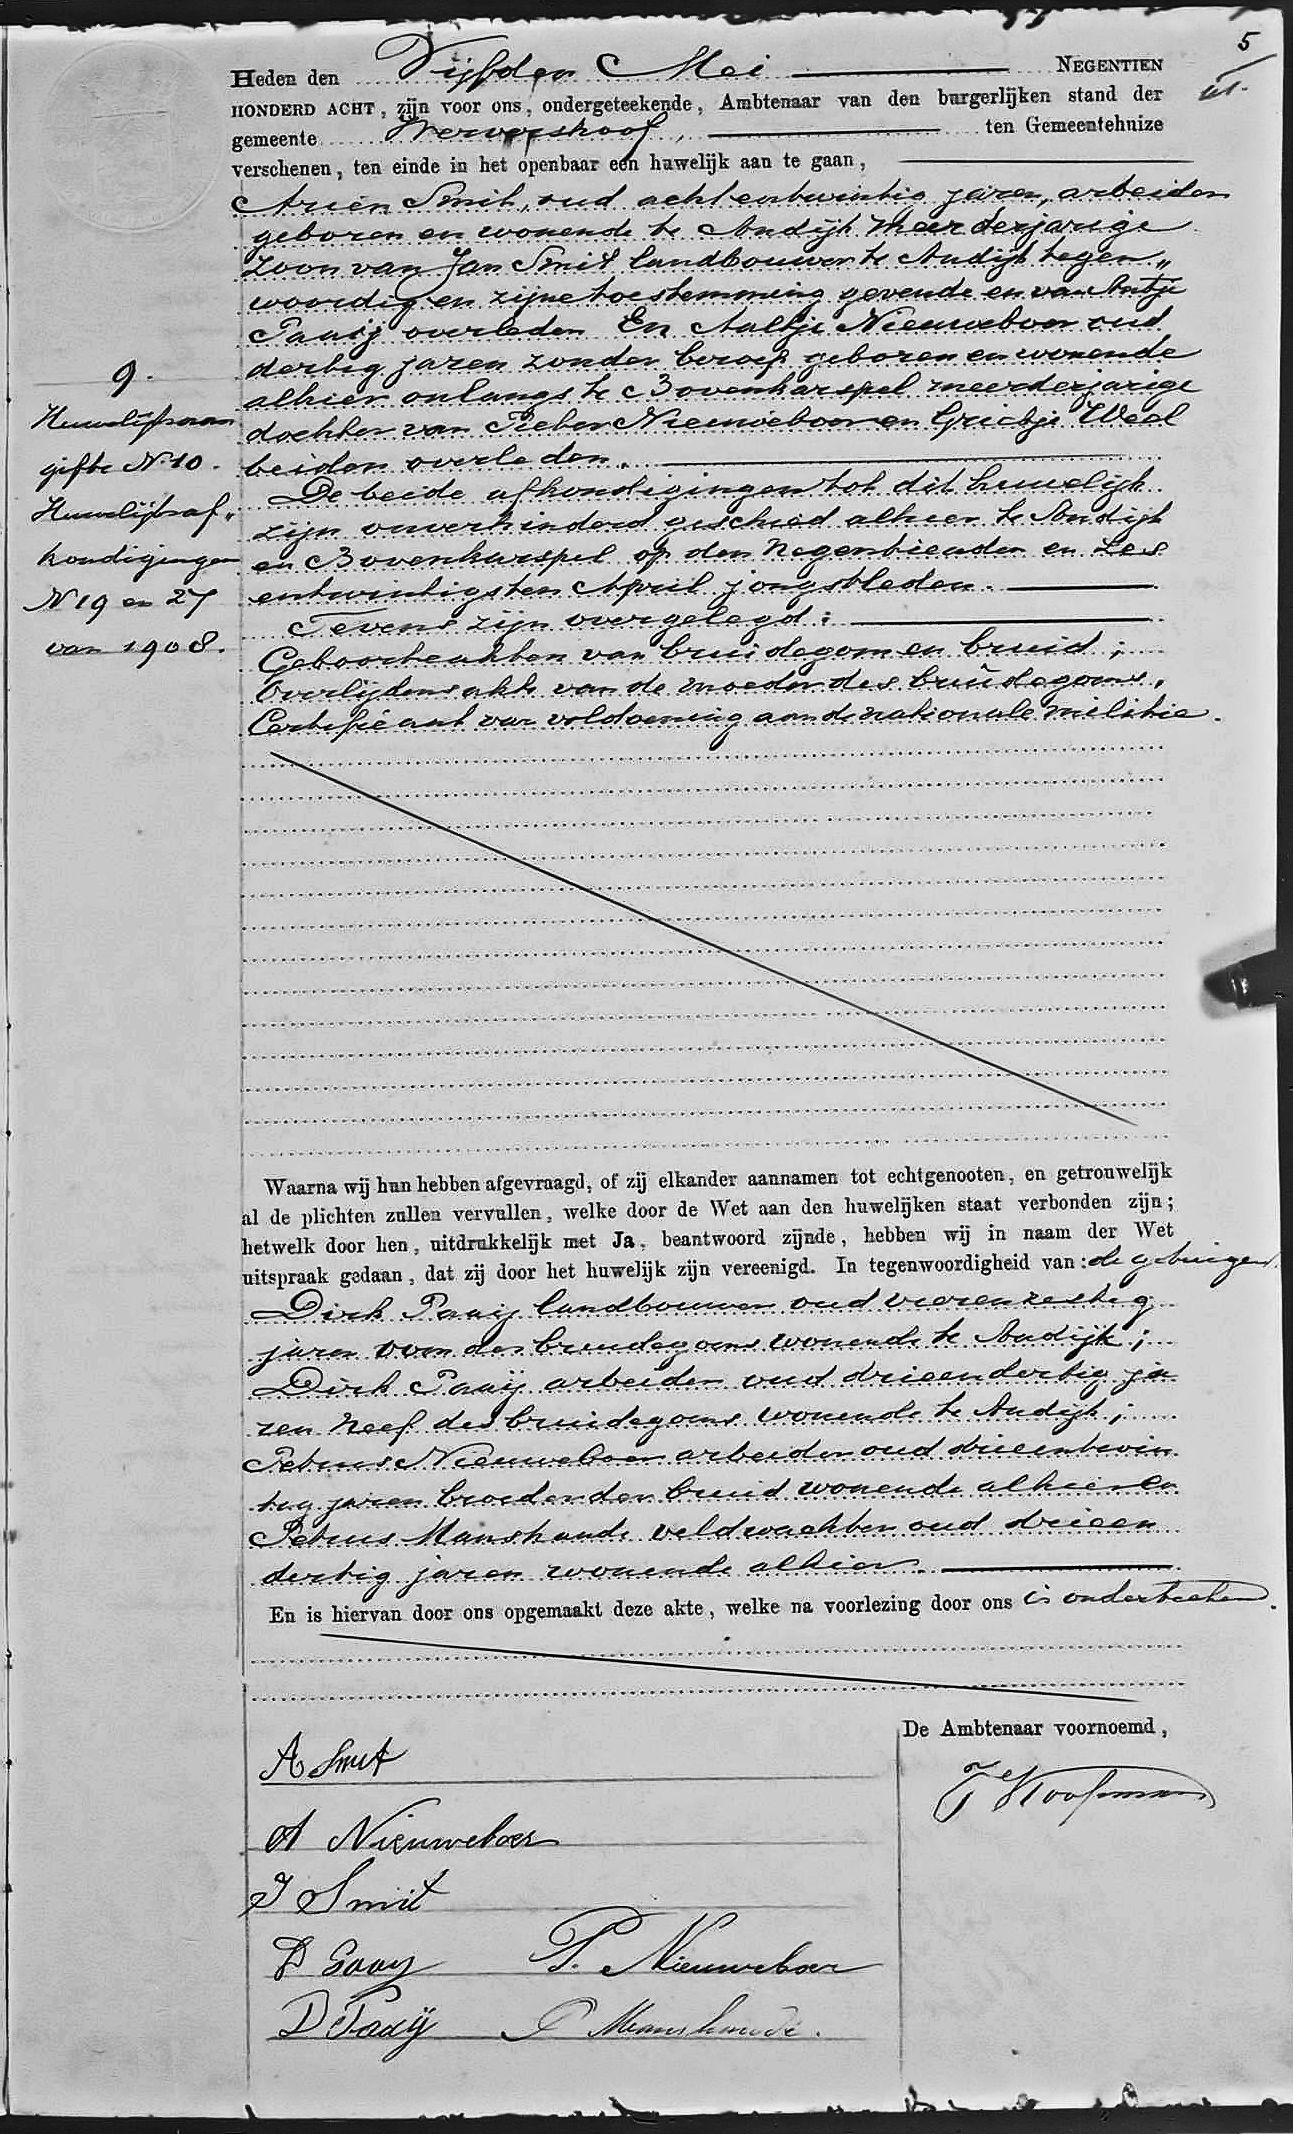 5
Heden den Vijfden Mei NEGENTIEN
HONDERD ACHT, zijn voor ons, ondergeteekende, Ambtenaar van den burgerlijken stand der
gemeente Wervershoof, ten Gemeentehuize
verschenen, ten einde in het openbaar een huwelijk aan te gaan,
Arien Smit, oud achtentwintig jaren, arbeider
geboren en wonende te Andijk meerderjarige
zoon van Jan Smit landbouwer te Andijk tegen„
woordig en zijne toestemming gevende en van Antje
Paaij overleden En Aaltje Nieuweboer oud
dertig jaren zonder beroep geboren en wonende
alhier onlangs te Bovenkarspel meerderjarige
dochter van Pieter Nieuweboer en Grietje Weel
beiden overleden.
De beide afkondigingen tot dit huwelijk
zijn onverhinderd geschied alhier te Andijk
en Bovenkarspel op den negentienden en zes
entwintigsten April jongstleden.
Tevens zijn overgelegd:
Geboorteakten van bruidegom en bruid;
Overlijdensakte van de moeder des bruidegoms,
Certificaat van voldoening aan de nationale militie.
9.
Huwelijksaan
gifte No 10.
Huwelijksaf„
kondigingen
N 19 en 27
van 1908.
Waarna wij hun hebben afgevraagd, of zij elkander aannamen tot echtgenooten, en getrouwelijk
al de plichten zullen vervullen, welke door de Wet aan den huwelijken staat verbonden zijn;
hetwelk door hen, uitdrukkelijk met Ja, beantwoord zijnde, hebben wij in naam der Wet
uitspraak gedaan, dat zij door het huwelijk zijn vereenigd. In tegenwoordigheid van: de getuigen
Dirk Paaij landbouwer oud vierenzestig
jaren oom des bruidegoms wonende te Andijk;
Dirk Paaij arbeider oud drieendertig ja
ren neef des bruidegoms wonende te Andijk;
Petrus Nieuweboer arbeider oud drieentwin
tig jaren broeder der bruid wonende alhier en
Petrus Manshande veldwachter oud drieen
dertig jaren wonende alhier.
En is hiervan door ons opgemaakt deze akte, welke na voorlezing door ons is onderteekend.
De Ambtenaar voornoemd,
A Smit
J Koopman
A Nieuweboer
J Smit
D Paaij P. Nieuweboer
D Paaij P Manshande.